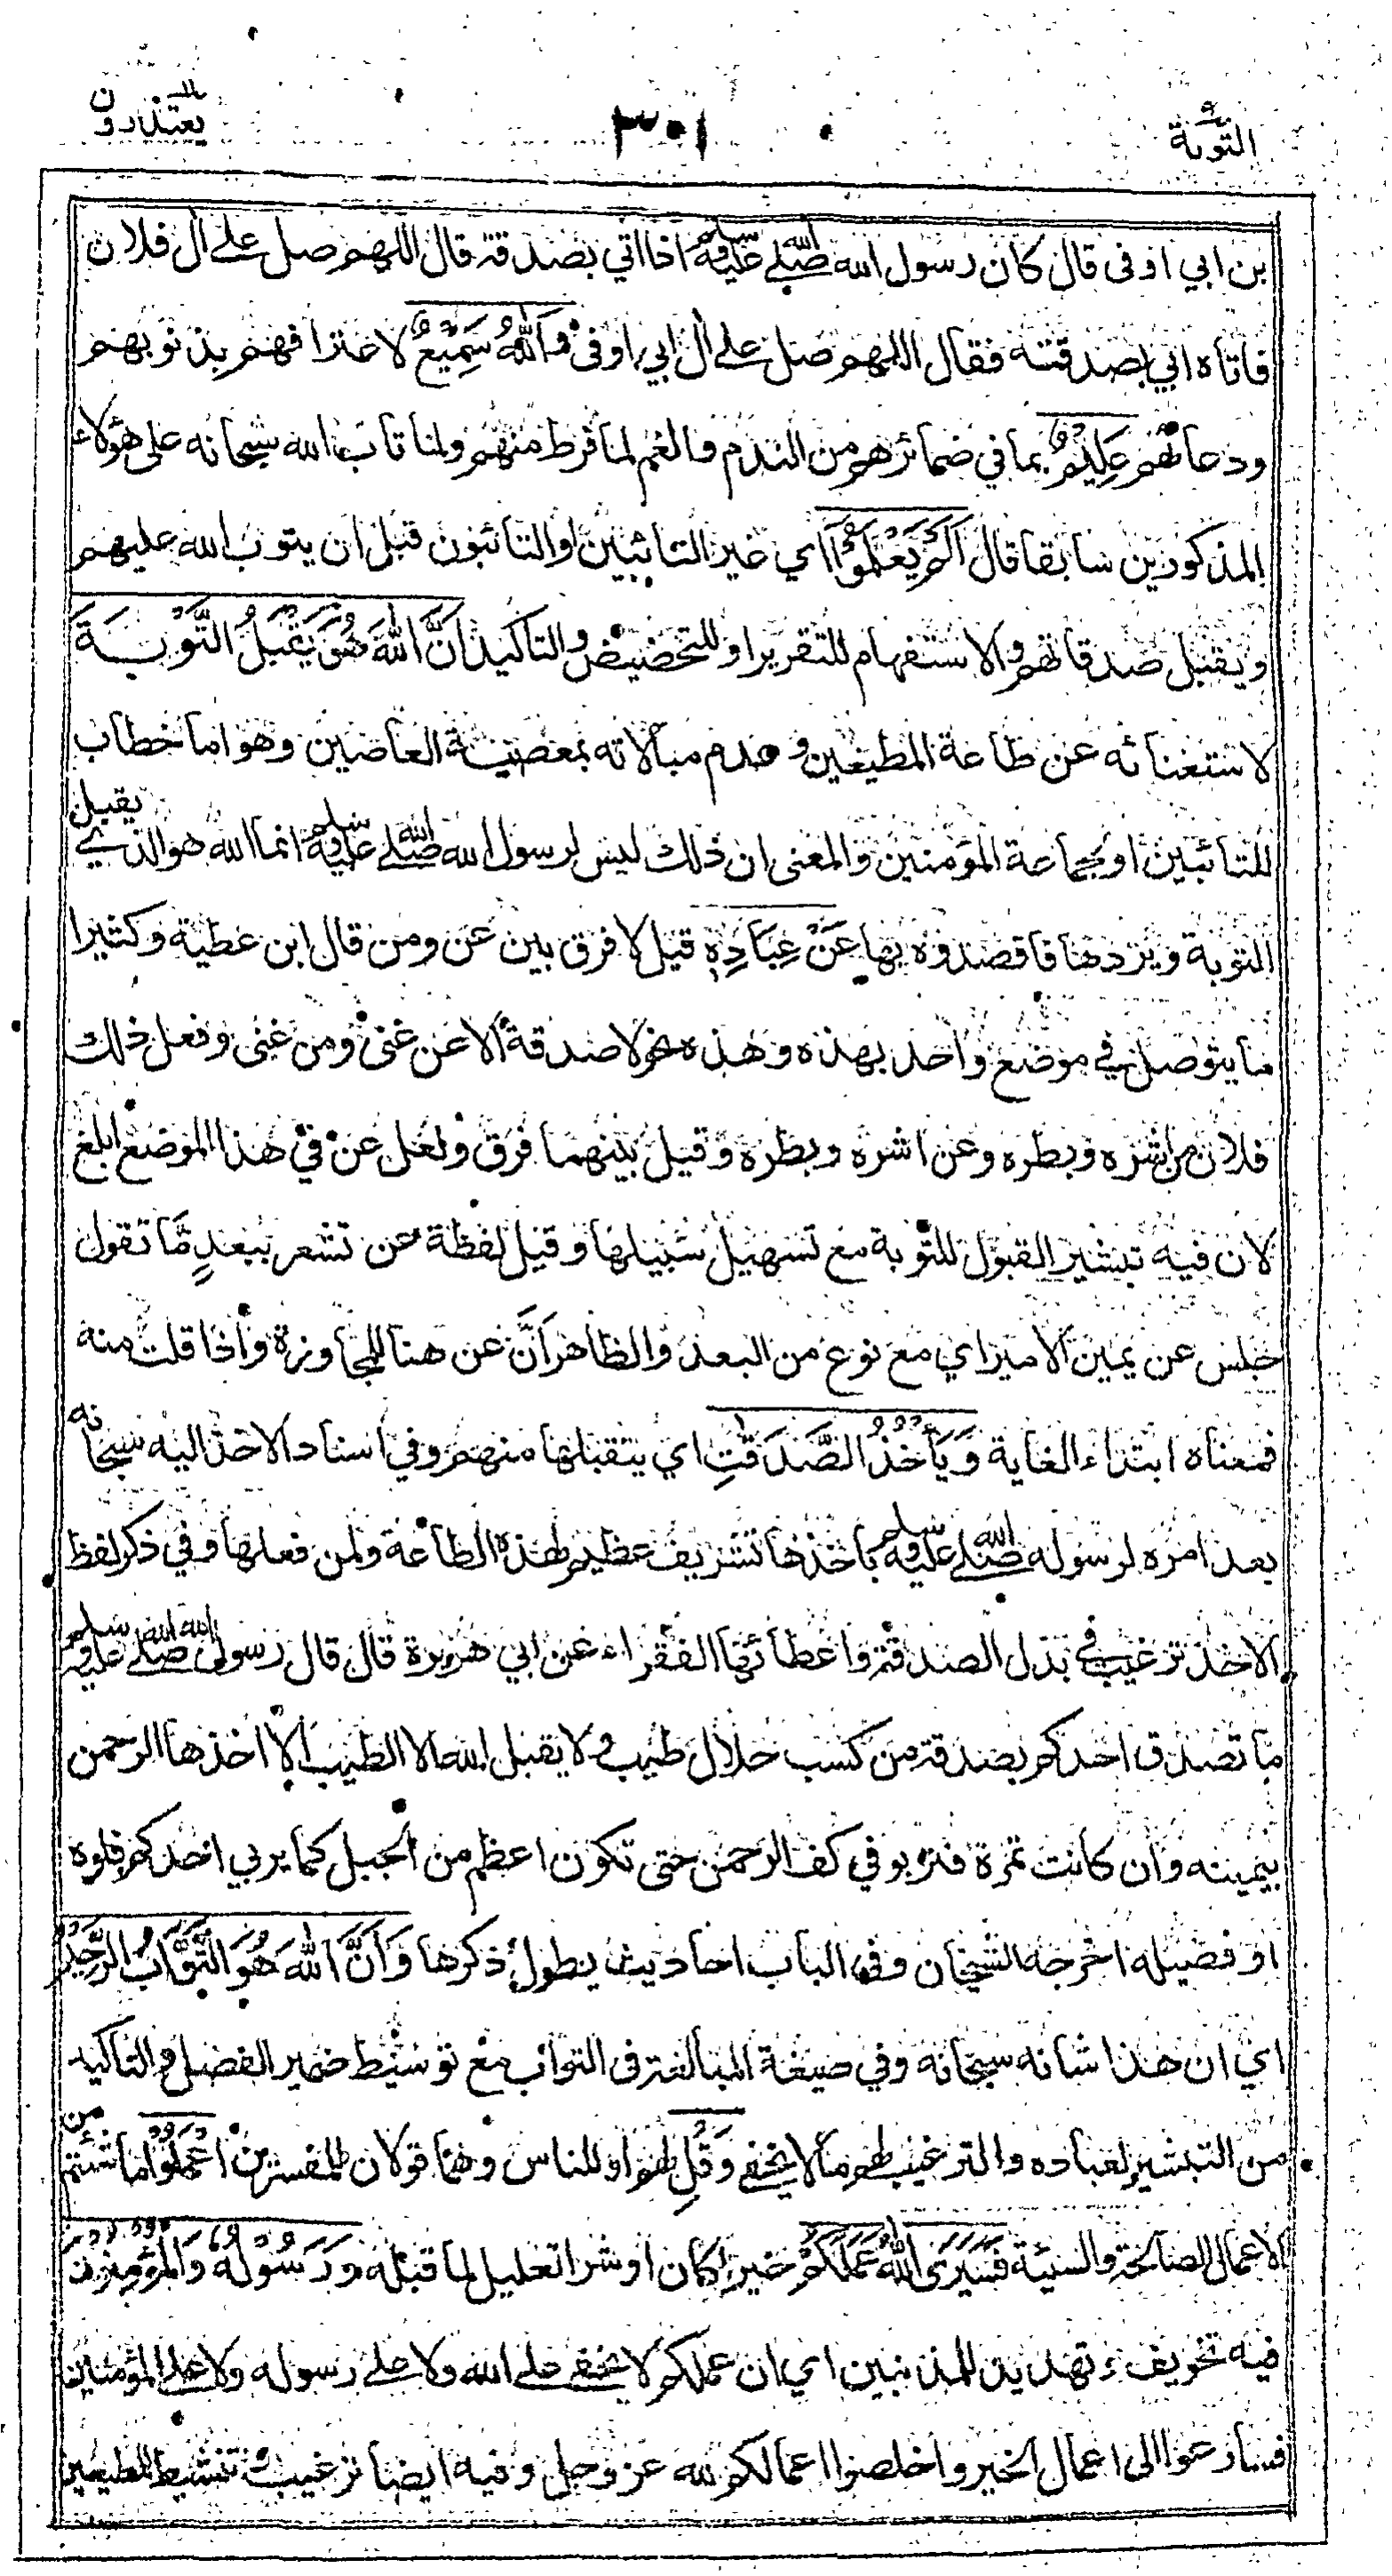 التوبة
٣٠١
يعتذرون
بن ابي اوفى قال كان رسول الله صلى الله عليه وسلم اذا اتي بصدقة قال اللهم صل على ال فلان
فاتاه ابي بصدقته فقال اللهم صل على ال ابي اوفى وَاللهُ سَمِيعٌ لاعترافهم بذنوبهم
ودعائهم عَلِيمٌ بما في ضمائرهم من الندم والغم لما فرط منهم ولما تاب الله سبحانه على هؤلاء
المذكورين سابقا قال اَلَمْ يَعْلَمُوْا اي غير التائبين او التائبون قبل ان يتوب الله عليهم
ويقبل صدقاتهم والاستفهام للتقرير او للتحضيض والتاكيد اَنَّ اللهَ هُوَ يَقْبَلُ التَّوْبَةَ
لاستغنائه عن طاعة المطيعين وعدم مبالاته بمعصية العاصين وهو اما خطاب
للتائبين او لجماعة المؤمنين والمعنى ان ذلك ليس لرسول الله صلى الله عليه وسلم انما الله هو الذي يقبل
التوبة ويردها فاقصدوه بها عَنْ عِبَادِهٖ قيل لا فرق بين عن ومن قال ابن عطية وكثيرا
ما يتوصل في موضع واحد بهذه وهذه نحو لا صدقة الا عن غنى ومن غنى وفعل ذلك
فلان من اشره وبطره وعن اشره وبطره وقيل بينهما فرق ولعل عن في هذا الموضع ابلغ
لان فيه تبشير القبول للتوبة مع تسهيل سبيلها وقيل لفظة عن تشعر ببعدٍ مّا تقول
جلس عن يمين الامير اي مع نوع من البعد والظاهر اَنَّ عن هنا للمجاوزة واذا قلت منه
فمعناه ابتداء الغاية وَيَأْخُذُ الصَّدَقٰتِ اي يتقبلها منهم وفي اسناد الاخذ اليه سبحانه
بعد امره لرسوله صلى الله عليه وسلم باخذها تشريف عظيم لهذه الطاعة ولمن فعلها وفي ذكر لفظ
الاخذ ترغيب في بذل الصدقة واعطائها الفقراء عن ابي هريرة قال قال رسول الله صلى الله عليه وسلم
ما تصدق احدكم بصدقة من كسب حلال طيب ولا يقبل الله الا الطيب الا اخذها الرحمن
بيمينه وان كانت تمرة فتربو في كف الرحمن حتى تكون اعظم من الجبل كما يربي احدكم فلوه
او فصيله اخرجه الشيخان وفي الباب احاديث يطول ذكرها وَاَنَّ اللهَ هُوَ التَّوَّابُ الرَّحِيْمُ
اي ان هذا شانه سبحانه وفي صيغة المبالغة في التواب مع توسيط ضمير الفصل والتاكيد
من التبشير لعباده والترغيب لهم ما لا يخفى وَقُلِ لهم او للناس وهما قولان للمفسرين اعْمَلُوْا ما شئتم من
الاعمال الصالحة والسيئة فَسَيَرَى اللهُ عَمَلَكُمْ خيرا كان او شرا تعليل لما قبله وَرَسُوْلُهٗ وَالْمُؤْمِنُوْنَ
فيه تخويف وتهديد للمذنبين اي ان عملكم لا يخفى على الله ولا على رسوله ولا على المؤمنين
فسارعوا الى اعمال الخير واخلصوا اعمالكم لله عز وجل وفيه ايضا ترغيب وتنشيط للمطيعين